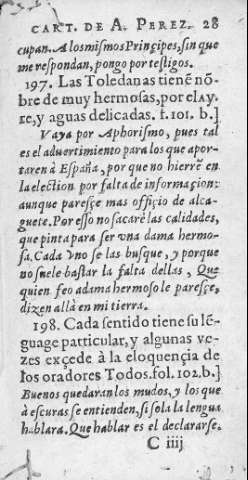 CART. DE A. PEREZ. 28
cupan. A los mismos Principes, sin que
me respondan, pongo por testigos.
197. Las Toledanas tienē nō-
bre de muy hermosas, por el Ay-
re, y aguas delicadas. f. 101. b.]
Vaya por Aphorismo, pues tal
es el aduertimiento para los que apor-
taren à España, por que no hierrē en
la election por falta de informaçion:
aunque paresçe mas offiçio de alca-
guete. Por esso no sacarè las calidades,
que pinta para ser vna dama hermo-
sa. Cada vno se las busque, y porque
no suele bastar la falta dellas, Que
quien feo ama hermoso le paresçe,
dizen allà en mi tierra.
198. Cada sentido tiene su lē-
guage particular, y algunas ve-
zes exçede à la eloquençia de
los oradores Todos. fol. 102. b.]
Buenos quedaran los mudos, y los que
à escuras se entienden, si sola la lengua
hablara. Que hablar es el declararse.
C iiij